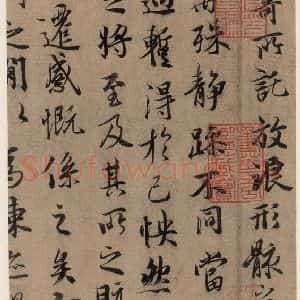 寄所託放浪形骸之
殊静躁不同當
遇暫得於己怏然
之将至及其所之既
遷感慨係之矣
之閒以為陳迹